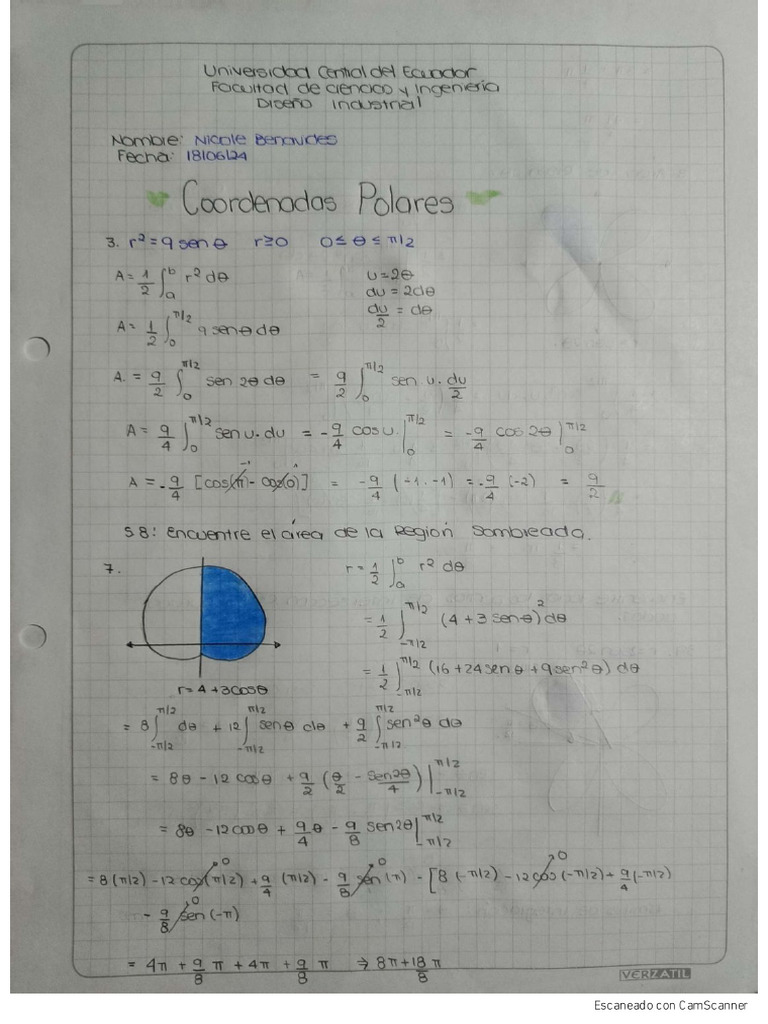 Universidad Central del Ecuador
Facultad de ciencias y Ingeniería
Diseño Industrial
Nombre: Nicole Benavides
Fecha: 18/06/24
Coordenadas Polares
3. r² = 9 sen θ   r≥0   0 ≤ θ ≤ π/2
A = 1/2 ∫_0^b r² dθ
u = 2θ
du = 2dθ
du/2 = dθ
A = 1/2 ∫_0^{π/2} 9 sen θ dθ
A. = 9/2 ∫_0^{π/2} sen 2θ dθ = 9/2 ∫_0^{π/2} sen u. du/2
A = 9/4 ∫_0^{π/2} sen u. du = -9/4 cos u |_0^{π/2} = -9/4 cos 2θ |_0^{π/2}
A = -9/4 [cos(π) - cos(0)] = -9/4 (-1 - 1) = -9/4 (-2) = 9/2
58: Encuentre el área de la Región Sombreada.
7.
r = 4 + 3cosθ
r = 1/2 ∫_0^b r² dθ
= 1/2 ∫_{-π/2}^{π/2} (4 + 3 sen θ)² dθ
= 1/2 ∫_{-π/2}^{π/2} (16 + 24 sen θ + 9 sen² θ) dθ
= 8 ∫_{-π/2}^{π/2} dθ + 12 ∫_{-π/2}^{π/2} sen θ dθ + 9/2 ∫_{-π/2}^{π/2} sen² θ dθ
= 8θ - 12 cos θ + 9/2 (θ/2 - sen 2θ/4) |_{-π/2}^{π/2}
= 8θ - 12 cos θ + 9/4 θ - 9/8 sen 2θ |_{-π/2}^{π/2}
= 8 (π/2) - 12 cos (π/2) + 9/4 (π/2) - 9/8 sen (π) - [8 (-π/2) - 12 cos (-π/2) + 9/4 (-π/2)
- 9/8 sen (-π)
= 4π + 9/8 π + 4π + 9/8 π ⇒ 8π + 18/8 π
VERZATIL
Escaneado con CamScanner